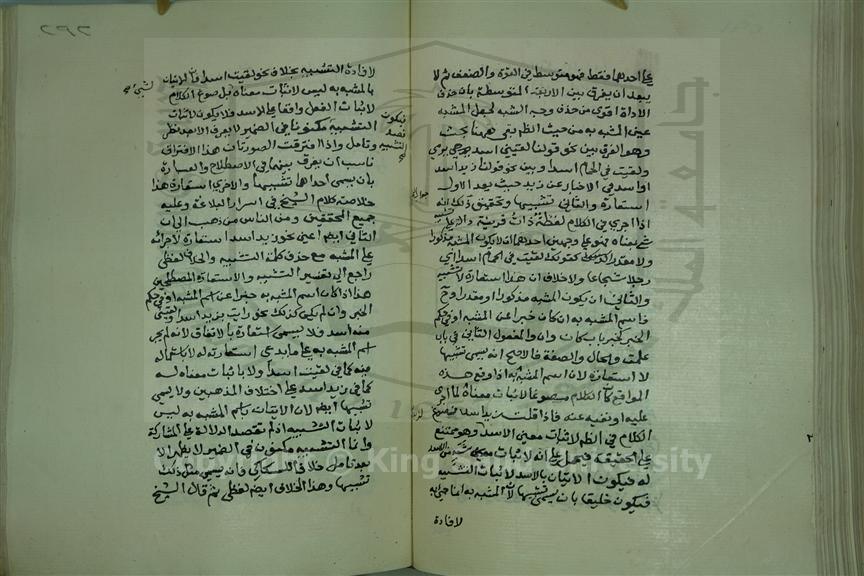 على احدهما فقط فهو متوسط في القوة والضعف ثم لا
يبعد ان يفرق بين الاربعة المتوسطة بان حذف
الاداة اقوى من حذف وجه الشبه لجعل المشبه
عين المشبه به من حيث الظ بقي ههنا بحث
وهو الفرق بين نحو قولنا لقيني اسد يرمي
ولقيت في الحمام اسدا وبين نحو قولنا زيد اسد
او اسد في الاخبار عن زيد حيث يعد الاول
استعارة والثاني تشبيها وتحقيق ذلك انه
اذا اجري في الكلام لفظة ذات قرينة دالة على تشبيه
شئ بمعناه فهو على وجهين احدهما ان لا يكون المشبه مذكورا
ولا مقدرا كقولك لقيت في الحمام اسدا اي
رجلا شجاعا ولا خلاف ان هذا استعارة لا تشبيه
والثاني ان يكون المشبه مذكورا او مقدرا وح
فاسم المشبه به ان كان خبرا عن المشبه او في حكم
الخبر كخبر باب كان وان والمفعول الثاني في باب
علمت والحال والصفة فالاصح انه يسمى تشبيها
لا استعارة لان اسم المشبه به اذا وقع هذه
المواقع كان الكلام مصوغا لاثبات معناه لما اجري
عليه او نفيه عنه فاذا قلت زيد اسد فصوغ
الكلام في الظ لاثبات معنى الاسد وهو ممتنع
على الحقيقة فيحمل على انه لاثبات شبه من الاسد
له فيكون الاتيان بالاسد لاثبات التشبيه
فيكون خليقا بان يسمى تشبيها لان المشبه به انما جئ به
لافادة
٢٩٢
لافادة التشبيه بخلاف نحو لقيت اسدا فان الاتيان
بالمشبه به ليس لاثبات معناه لشئ بل صوغ الكلام
لاثبات الفعل واقعا على الاسد فلا يكون لاثبات
التشبيه فيكون قصد التشبيه مكنونا في الضمير لا يعرف الا بعد نظر
وتامل واذا افترقت الصورتان هذا الافتراق
ناسب ان يفرق بينهما في الاصطلاح والعبارة
بان يسمى احداهما تشبيها والاخرى استعارة هذا
خلاصة كلام الشيخ في اسرار البلاغة وعليه
جميع المحققين ومن الناس من ذهب الى ان
الثاني ايضا اعني نحو زيد اسد استعارة لاجرائه
على المشبه مع حذف كلمة التشبيه والخلاف لفظي
راجع الى تفسير التشبيه والاستعارة المصطلحين
هذا اذا كان اسم المشبه به خبرا عن اسم المشبه او في حكم
الخبر وان لم يكن كذلك نحو رايت بزيد اسدا ولقيني
منه اسد فلا يسمى استعارة بالاتفاق لانه لم يجر
اسم المشبه به على ما يدعي استعارته له لا باستعماله
فيه كما في لقيت اسدا ولا باثبات معناه له
كما في زيد اسد على اختلاف المذهبين ولا يسمى
تشبيها ايضا لان الاتيان باسم المشبه به ليس
لاثبات التشبيه اذ لم تقصد الدلالة على المشاركة
وانما التشبيه مكنون في الضمير لا يظهر الا
بعد تامل خلافا للسكاكي فانه يسمي مثل ذلك
تشبيها وهذا الخلاف ايضا لفظي ثم قال الشيخ